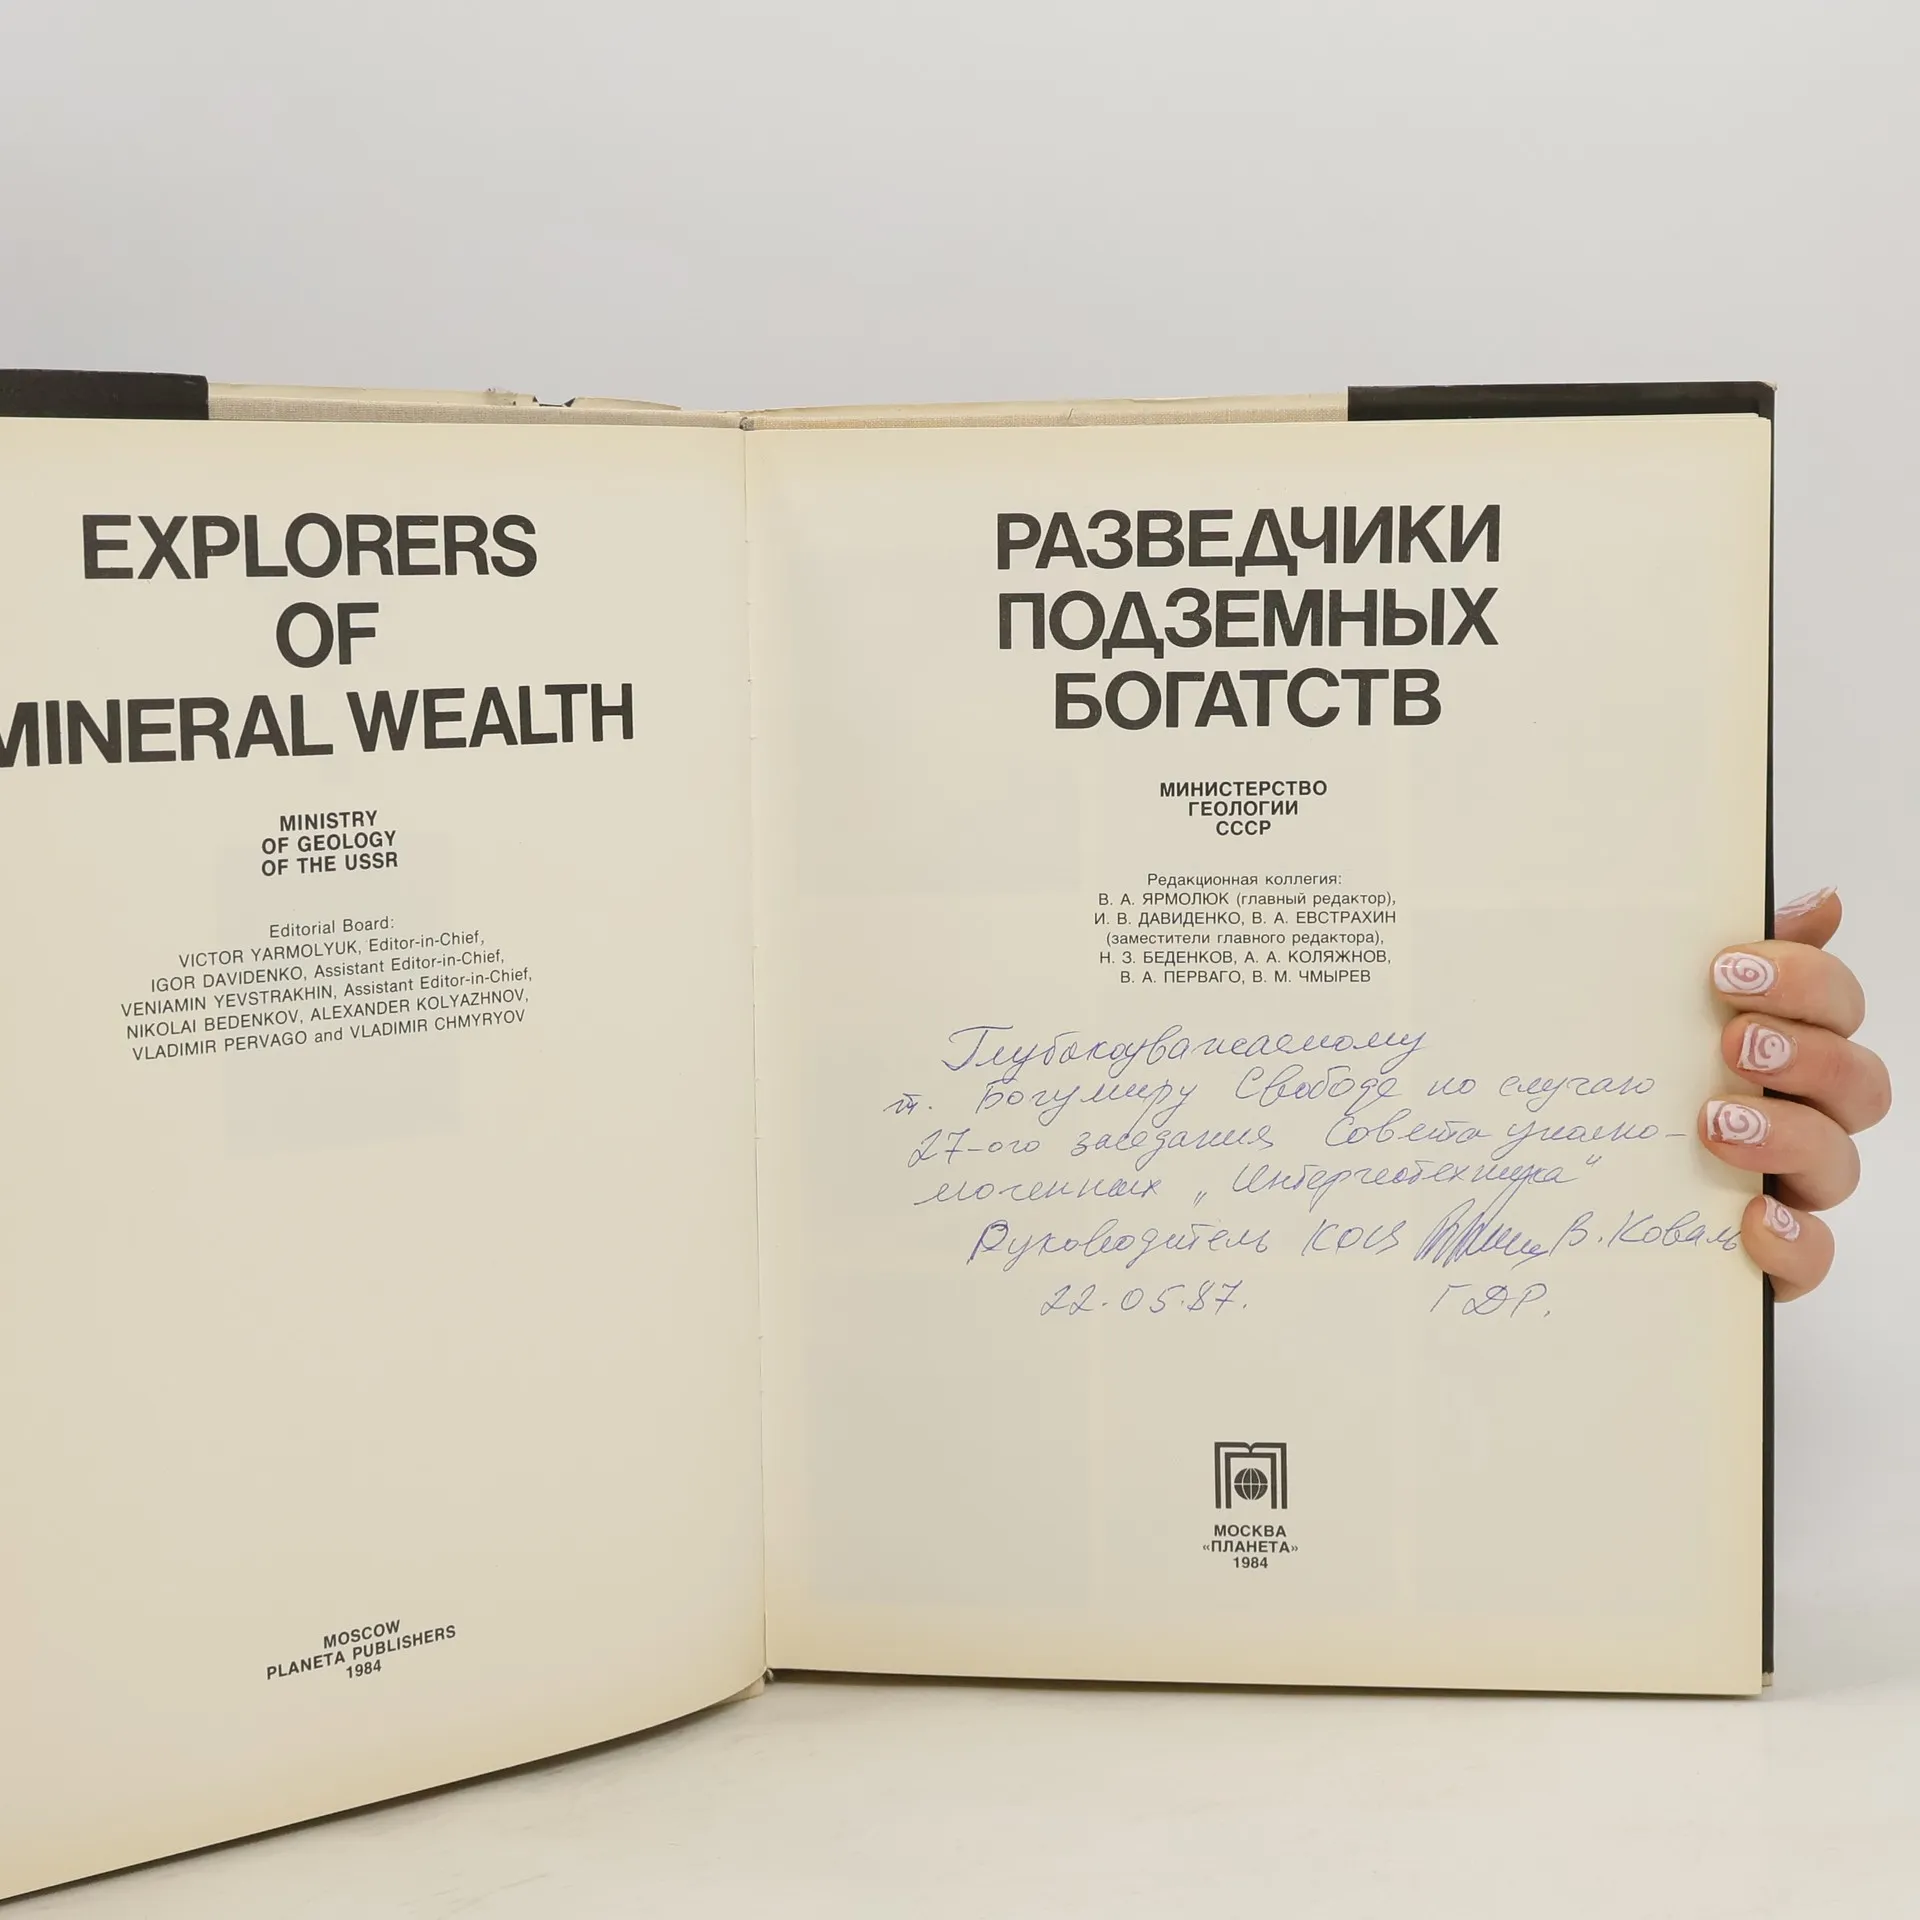 EXPLORERS
OF
MINERAL WEALTH
MINISTRY
OF GEOLOGY
OF THE USSR
Editorial Board:
VICTOR YARMOLYUK, Editor-in-Chief,
IGOR DAVIDENKO, Assistant Editor-in-Chief,
VENIAMIN YEVSTRAKHIN, Assistant Editor-in-Chief,
NIKOLAI BEDENKOV, ALEXANDER KOLYAZHNOV,
VLADIMIR PERVAGO and VLADIMIR CHMYRYOV
MOSCOW
PLANETA PUBLISHERS
1984
РАЗВЕДЧИКИ
ПОДЗЕМНЫХ
БОГАТСТВ
МИНИСТЕРСТВО
ГЕОЛОГИИ
СССР
Редакционная коллегия:
В. А. ЯРМОЛЮК (главный редактор),
И. В. ДАВИДЕНКО, В. А. ЕВСТРАХИН
(заместители главного редактора),
Н. З. БЕДЕНКОВ, А. А. КОЛЯЖНОВ,
В. А. ПЕРВАГО, В. М. ЧМЫРЕВ
Глубокоуважаемому
т. Богумиру Свободе по случаю
27-ого заседания Совета уполно-
моченных „Интергеотехника“
Руководитель КОЦ В. Коваль
22.05.87. ГДР.
МОСКВА
«ПЛАНЕТА»
1984